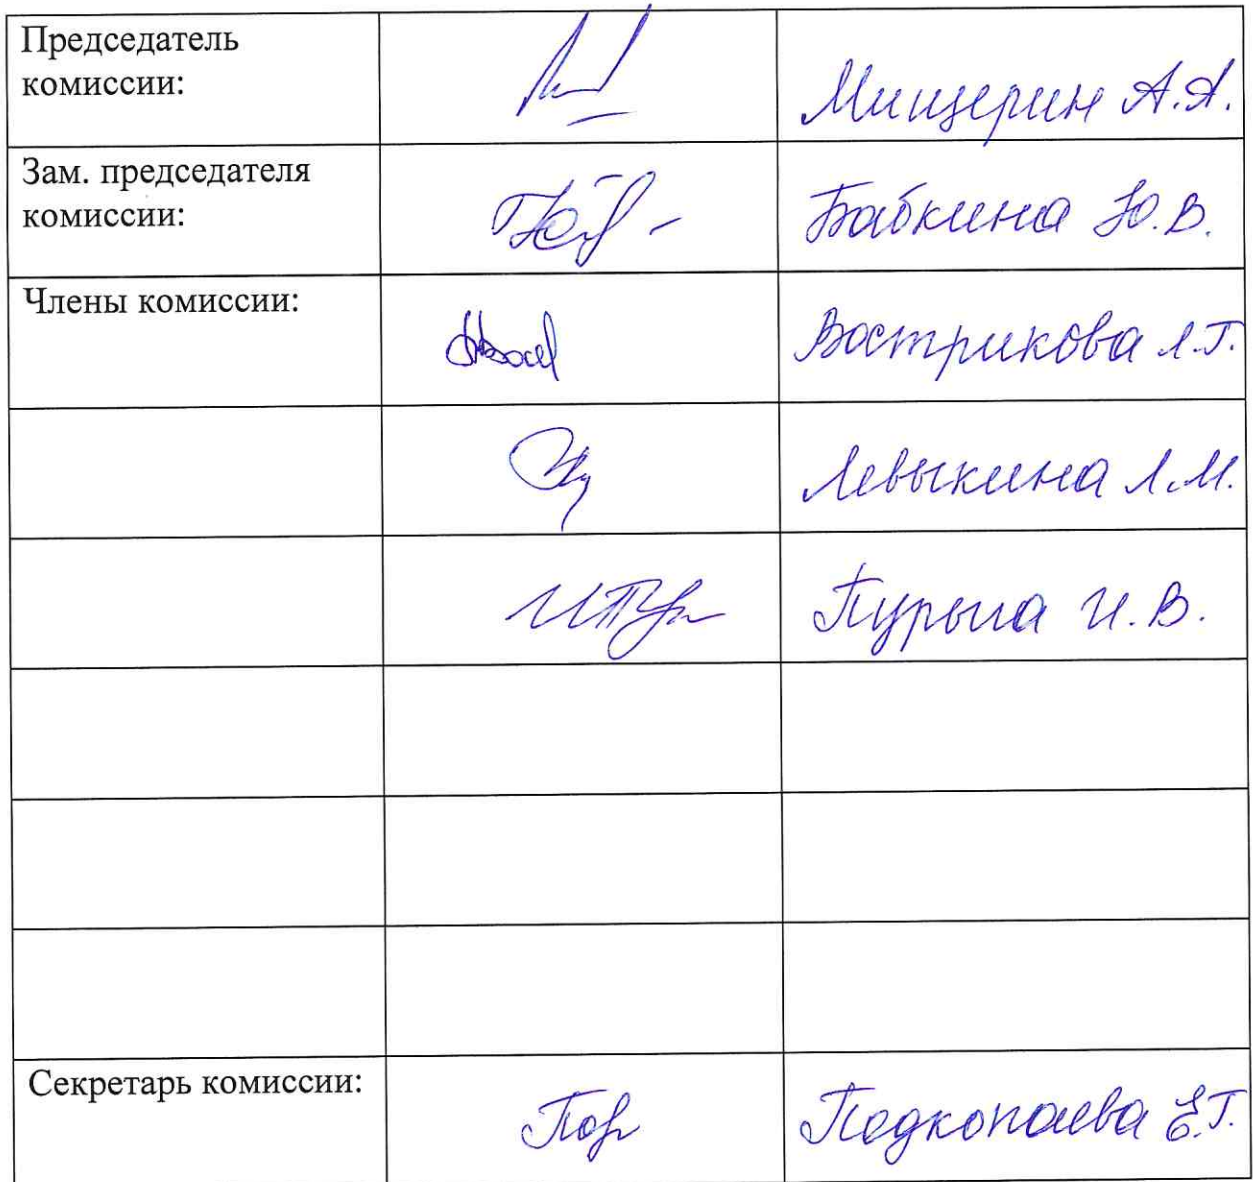 Председатель
комиссии:
Мищерин А.А.
Зам. председателя
комиссии:
Бабкина Ю.В.
Члены комиссии:
Вострикова Л.Г.
Левыкина Л.М.
И.В.
Секретарь комиссии:
Подкопаева Е.Г.